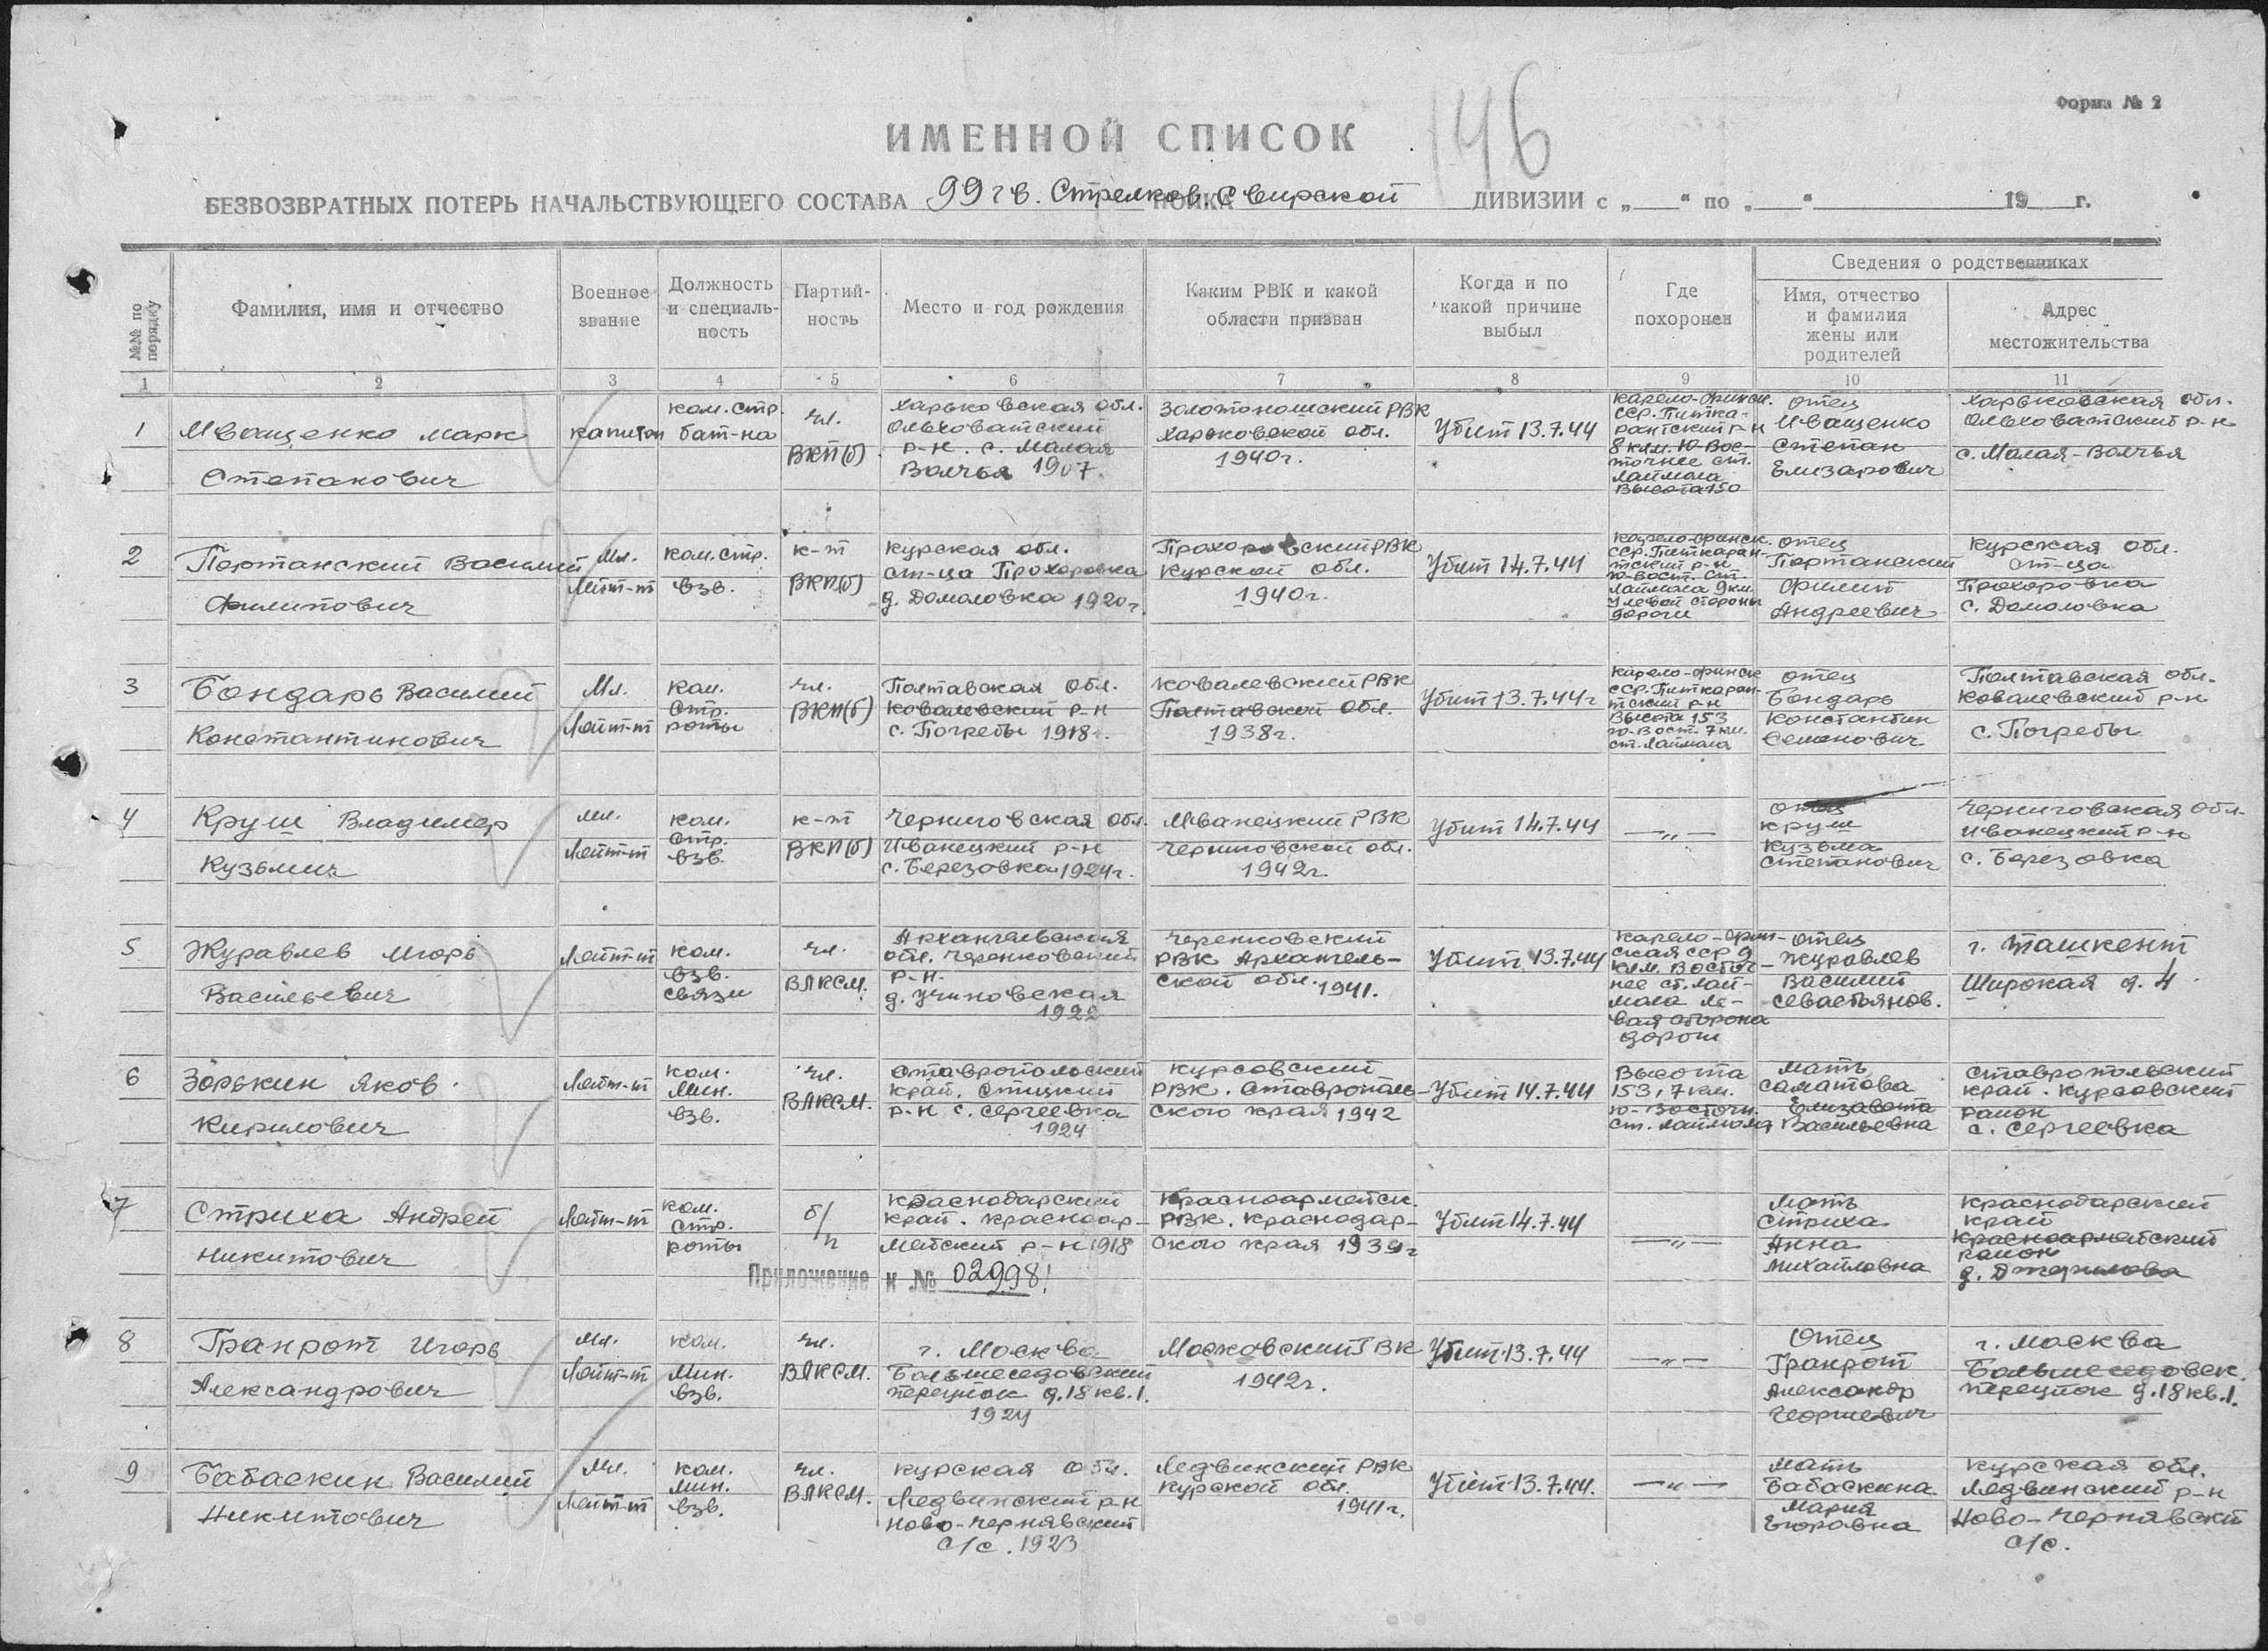 Форма № 2
146
ИМЕННОЙ СПИСОК
БЕЗВОЗВРАТНЫХ ПОТЕРЬ НАЧАЛЬСТВУЮЩЕГО СОСТАВА 99 гв. Стрелков. Свирской ДИВИЗИИ с „ “ по „ “ 19 г.
№№ по порядку
Фамилия, имя и отчество
Военное звание
Должность и специаль-ность
Партий-ность
Место и год рождения
Каким РВК и какой области призван
Когда и по какой причине выбыл
Где похоронен
Сведения о родственниках
Имя, отчество и фамилия жены или родителей
Адрес местожительства
1 2 3 4 5 6 7 8 9 10 11
1
Иващенко Марк
Степанович
капитан
ком. стр.
бат-на
чл.
ВКП(б)
Харьковская обл.
Ольховатский
р-н. с. Малая
Волчья 1907.
Золотоношский РВК
Харьковской обл.
1940г.
Убит 13.7.44
Карело-Финск.
ССР. Питка-
рантский р-н
8 клм. Ю-Вос-
точнее ст.
Лаймола
Высота 150
отец
Иващенко
Степан
Елизарович
Харьковская обл.
Ольховатский р-н
с. Малая-Волчья
2
Портанский Василий
Филипович
Мл.
Лейт-т
ком. стр.
взв.
к-т
ВКП(б)
Курская обл.
ст-ца Прохоровка
д. Домоловка 1920г.
Прохоровский РВК
Курской обл.
1940г.
Убит 14.7.44
Карело-финск.
ССР. Питкаран-
тский р-н
ю-вост. ст.
Лаймола 9 км.
у левой стороны
дороги
отец
Портанский
Филипп
Андреевич
Курская обл.
ст-ца
Прохоровка
с. Домоловка
3
Бондарь Василий
Константинович
Мл.
Лейт-т
ком.
стр.
роты
чл.
ВКП(б)
Полтавская обл.
Ковалевский р-н
с. Погребы 1918г.
Ковалевский РВК
Полтавской обл.
1938г.
Убит 13.7.44г
Карело-финск
ССР. Питкаран-
тский р-н
Высота 153
ю-вост. 7 км.
ст. Лаймола
отец
Бондарь
Константин
Семенович
Полтавская обл.
Ковалевский р-н
с. Погребы
4
Круш Владимер
Кузьмич
мл.
Лейт-т
ком.
стр.
взв.
к-т
ВКП(б)
Черниговская обл.
Иванецкий р-н
с. Березовка 1924г.
Иванецкий РВК
Черниговской обл.
1942г.
Убит 14.7.44
—„—
отец
Круш
Кузьма
Степанович
Черниговская обл.
Иванецкий р-н
с. Березовка
5
Журавлев Игорь
Васильевич
Лейт-т
ком.
взв.
связи
чл.
ВЛКСМ.
Архангельская
обл. Черенковский
р-н.
д. Учиновская
1922
Черенковский
РВК Архангель-
ской обл. 1941.
Убит 13.7.44
Карело-фин-
ская ССР 9
клм. Восточ-
нее ст. Лай-
мола ле-
вая сторона
дороги
отец
Журавлев
Василий
Севастьянов.
г. Ташкент
Широкая д. 4
6
Зорькин Яков
Кирилович
Лейт-т
ком.
Мин.
взв.
чл.
ВЛКСМ.
Ставропольский
край. Стицкий
р-н с. Сергеевка
1924
Курсавский
РВК. Ставрополь-
ского края 1942
Убит 14.7.44
Высота
153, 7 км.
ю-восточн.
ст. Лаймола
мать
Саматова
Елизавета
Васильевна
Ставропольский
край. Курсавский
район
с. Сергеевка
7
Стриха Андрей
Никитович
Лейт-т
ком.
стр.
роты
б/п
Краснодарский
край. Красноар-
мейский р-н 1918
Красноармейск.
РВК. Краснодар-
ского края 1939г
Убит 14.7.44
—„—
мать
Стриха
Анна
Михайловна
Краснодарский
край
Красноармейский
район
д. Джерилова
Приложение к № 02998!
8
Гранрот Игорь
Александрович
Мл.
Лейт-т
ком.
Мин.
взв.
чл.
ВЛКСМ.
г. Москва
Большеседовский
переулок д. 18 кв. 1.
1924
Московский ГВК
1942г.
Убит 13.7.44
—„—
Отец
Гранрот
Александр
Георгиевич
г. Москва
Большеседовск.
переулок д. 18 кв. 1.
9
Бабаскин Василий
Никитович
Мл.
Лейт-т
ком.
мин.
взв.
чл.
ВЛКСМ.
Курская обл.
Ледвинский р-н
Ново-Чернявский
с/с. 1923
Ледвинский РВК
Курской обл.
1941г.
Убит 13.7.44.
—„—
мать
Бабаскина
Мария
Егоровна
Курская обл.
Ледвинский р-н
Ново-Чернявский
с/с.